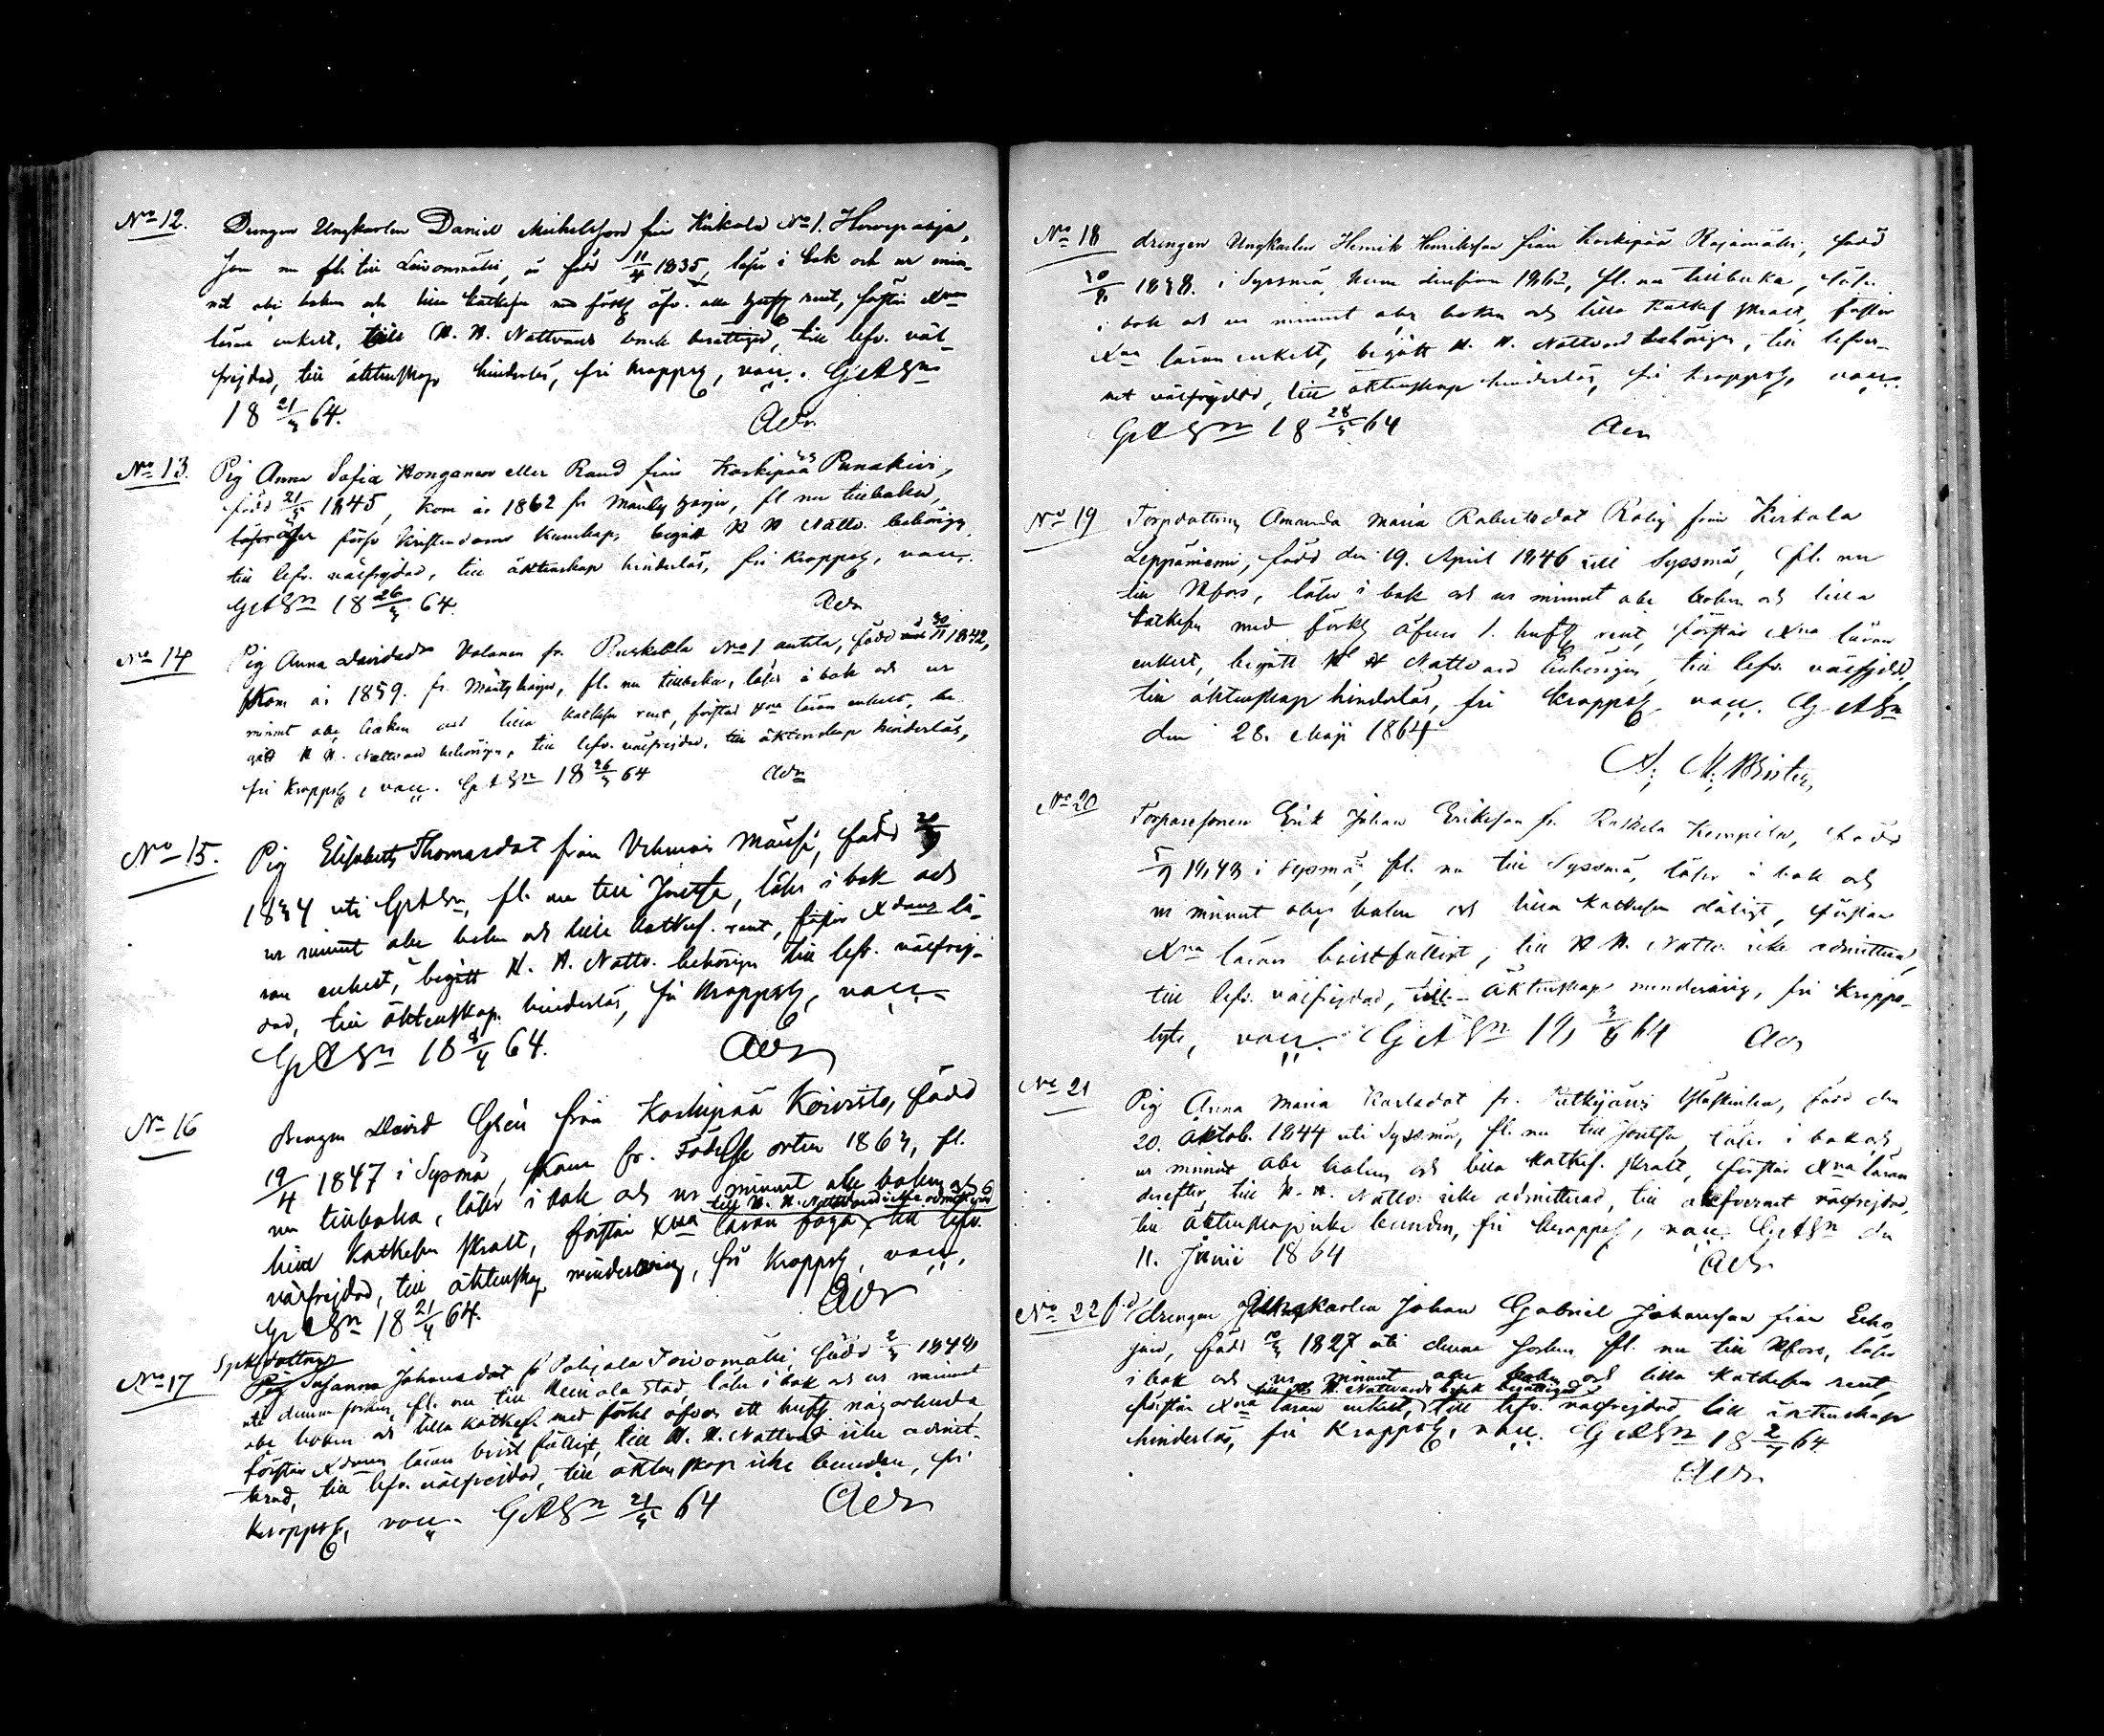 No 12. Drengen Ungkarlen Daniel Michelsson från Kirkola No 1.
som nu fl. till Leivonmäki, är född 11/4 1835, läser i bok och ur min-
net abc boken och lilla katkesen med förkl öfv. alla rent, förstår Xna
läran enkelt, till H. H. Nattvards bruk berättigad, till lefv. väl-
frejdad, till äktenskap hinderlös, fri kroppsl, vacc. GrASn
18 21/3 64. Adr
No 13. Pig Anna Sofia Honganen eller Rand från Koskipää Punakivi,
född 21/5 1845, kom år 1862 fr Mäntyharju, fl. nu tillbaka,
äger försv Kristendoms kunskap, begått H H Nattv. behörigen
till lefv. välfrejdad, till äktenskap hinderlös, fri kroppsl, vacc.
GrASn 18 26/3 64. Adr
No 14 Pig Anna Davidsdr Valanen fr. Ruskeala No 1 född 30/11 1842,
kom år 1859. fr. Mäntyharju, fl. nu tillbaka, läser i bok och ur
minnet abc boken och lilla katkesen rent, förstår Xna läran enkelt, be-
gått H H. Nattvard behörigen, till lefv. välfrejdad, till äktenskap hinderlös,
fri kroppsl, vacc. GrASn 18 26/3 64 Adr
No 15. Pig Elisabeth Thomasdot från född
1834 uti GrASn, fl. nu till Joutsa, läser i bok och
ur minnet abc boken och lilla katkes. rent, förstår Xdoms lä-
ran enkelt, begått H. H. Nattv. behörigen till lefv. välfrej-
dad, till äktenskap hinderlös, fri kroppsl, vacc.
GrASn 18 8/4 64. Adr
No 16 Drengen David Glén från Koskipää Koivisto, född
19/4 1847 i Sysmä, kom fr. Födelse orten 1863, fl.
nu tillbaka, läser i bok och ur minnet abc boken och
till H. H. Nattvard icke admitterad
lilla katkesen skralt, förstår Xna läran föga, till lefv.
välfrejdad, till äktenskap minderårig, fri kroppsl, vacc.
GrASn 18 21/4 64. Adr
No 17 Pig Susanna Johansdot fr Pohjola Toivomäki, född 2/3 1848
uti denna forsken, fl. nu till Heinola stad, läser i bok och ur minnet
abc boken och lilla katkes. med förkl öfver ett hufs någorlunda
förstår Xdoms läran bristfälligt, till H. H. Nattvard icke admit-
terad, till lefv. välfrejdad, till äktenskap icke bunden, fri
kroppsl, vacc. GrASn 21/4 64 Adr
No 18 drengen Ungkarlen Henrik Henriksson från Koskipää Rajamäki, född
1838. i Sysmä, kom derifrån 1862, fl. nu tillbaka, läser
i bok och ur minnet abc boken och lilla katkes skralt, förstår
Xna läran enkelt, begått H. H. Nattvard behörigen, till lefver-
net välfrejdad, till äktenskap hinderlös, fri kroppsl, vacc.
GrASn 18 28/5 64 Adr
No 19 Torpdottren Amanda Maria Robertsdot från Kirkola
Leppäniemi, född den 19. April 1846 uti Sysmä, fl. nu
till Hfors, läser i bok och ur minnet abc boken och lilla
katkesen med förkl öfver 1. hufs rent, förstår Xna läran
enkelt, begått H H Nattvard behörigen, till lefv. välfrejdad,
till äktenskap hinderlös, fri kroppsl, vacc. GrASn
den 28. Maji 1864
No 20 Torparesonen Erik Johan Eriksson fr. född
5/9 1848 i Sysmä, fl. nu till Sysmä, läser i bok och
ur minnet abc boken och lilla katkesen dåligt, förstår
Xna läran bristfälligt, till H H. Nattv. icke admitterad,
till lefv. välfrejdad, till äktenskap minderårig, fri kropps-
lyte, vacc. GrASn 18 3/6 64 Adr
No 21 Pig Anna Maria Karlsdot fr. född den
20. Oktob. 1844 uti Sysmä, fl. nu till Joutsa, läser i bok och
ur minnet abc boken och lilla katkes. skralt, förstår Xna läran
derefter, till H. H. Nattv. icke admitterad, till lefvernet välfrejdad,
till äktenskap icke bunden, fri kroppsl, vacc. GrASn den
11. Junii 1864 Adr
No 22 drengen Ungkarlen Johan Gabriel Johansson från
född 10/3 1827 uti denna forsken fl. nu till Hfors, läser
i bok och ur minnet abc boken och lilla katkesen rent,
till H. H. Nattvards bruk berättigad
förstår Xna läran enkelt, till lefv. välfrejdad till äktenskap
hinderlös, fri kroppsl, vacc. GrASn 18 2/7 64
Adr